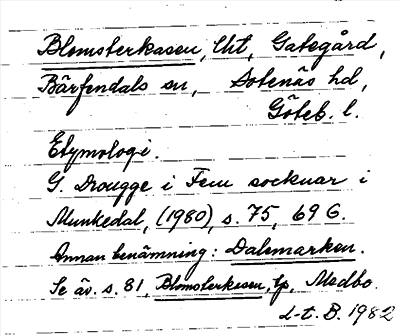 Blomsterkasen, Utt, Gategård,
Bärfendals sn, Sotenäs hd,
Göteb. l.
Etymologi.
G. Drougge i Fem socknar i
Munkedal, (1980), s. 75, 69 G.
Annan benämning: Dalemarken.
Se äv. s. 81, Blomsterkasen, tp, Medbo.
L-t. B. 1982